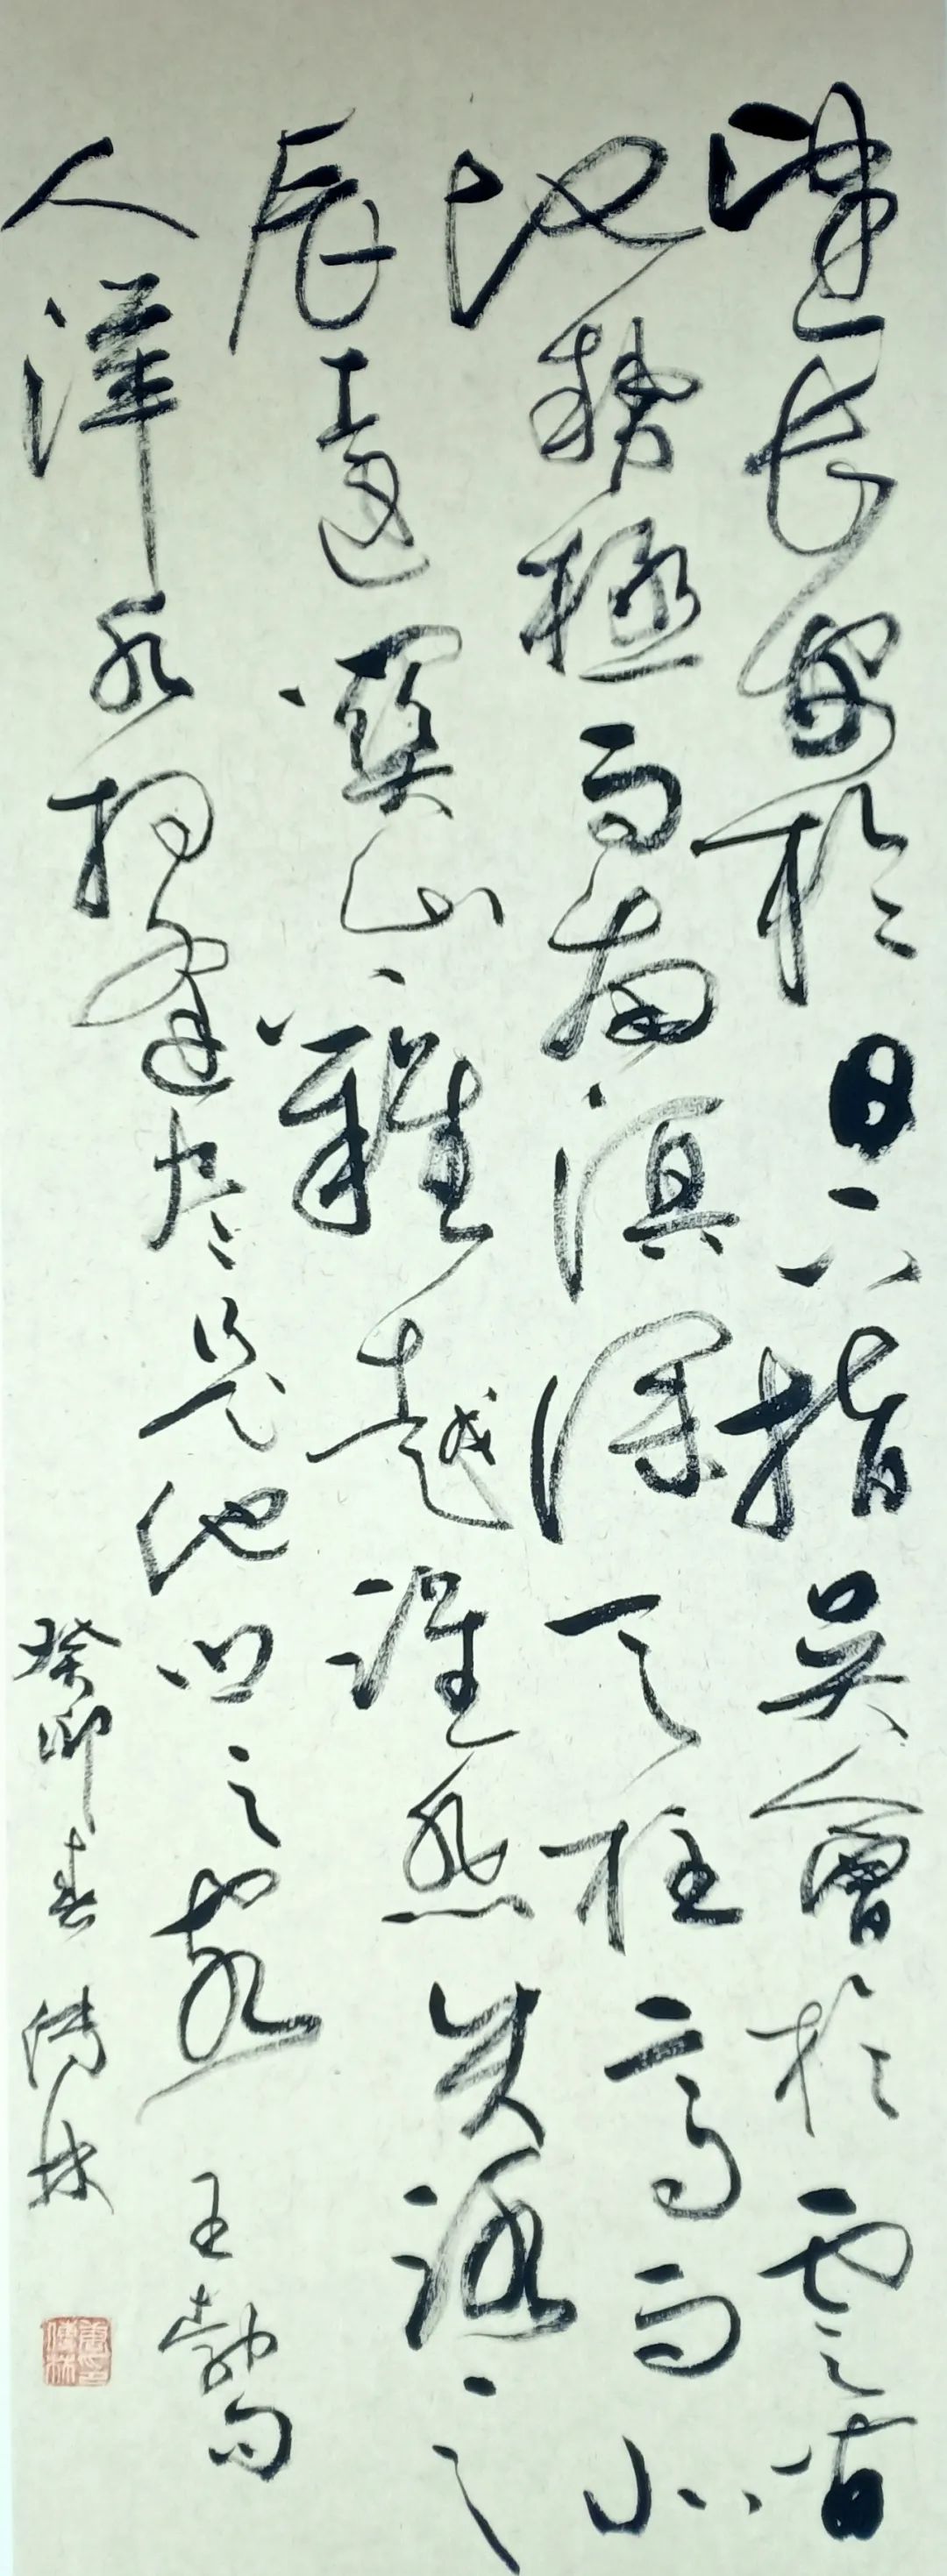 望長安於日下指吳會於雲間
地勢極而南溟深天柱高而北
辰遠關山難越誰悲失路之
人萍水相逢尽是他鄉之客 王勃句
癸卯春 傳林